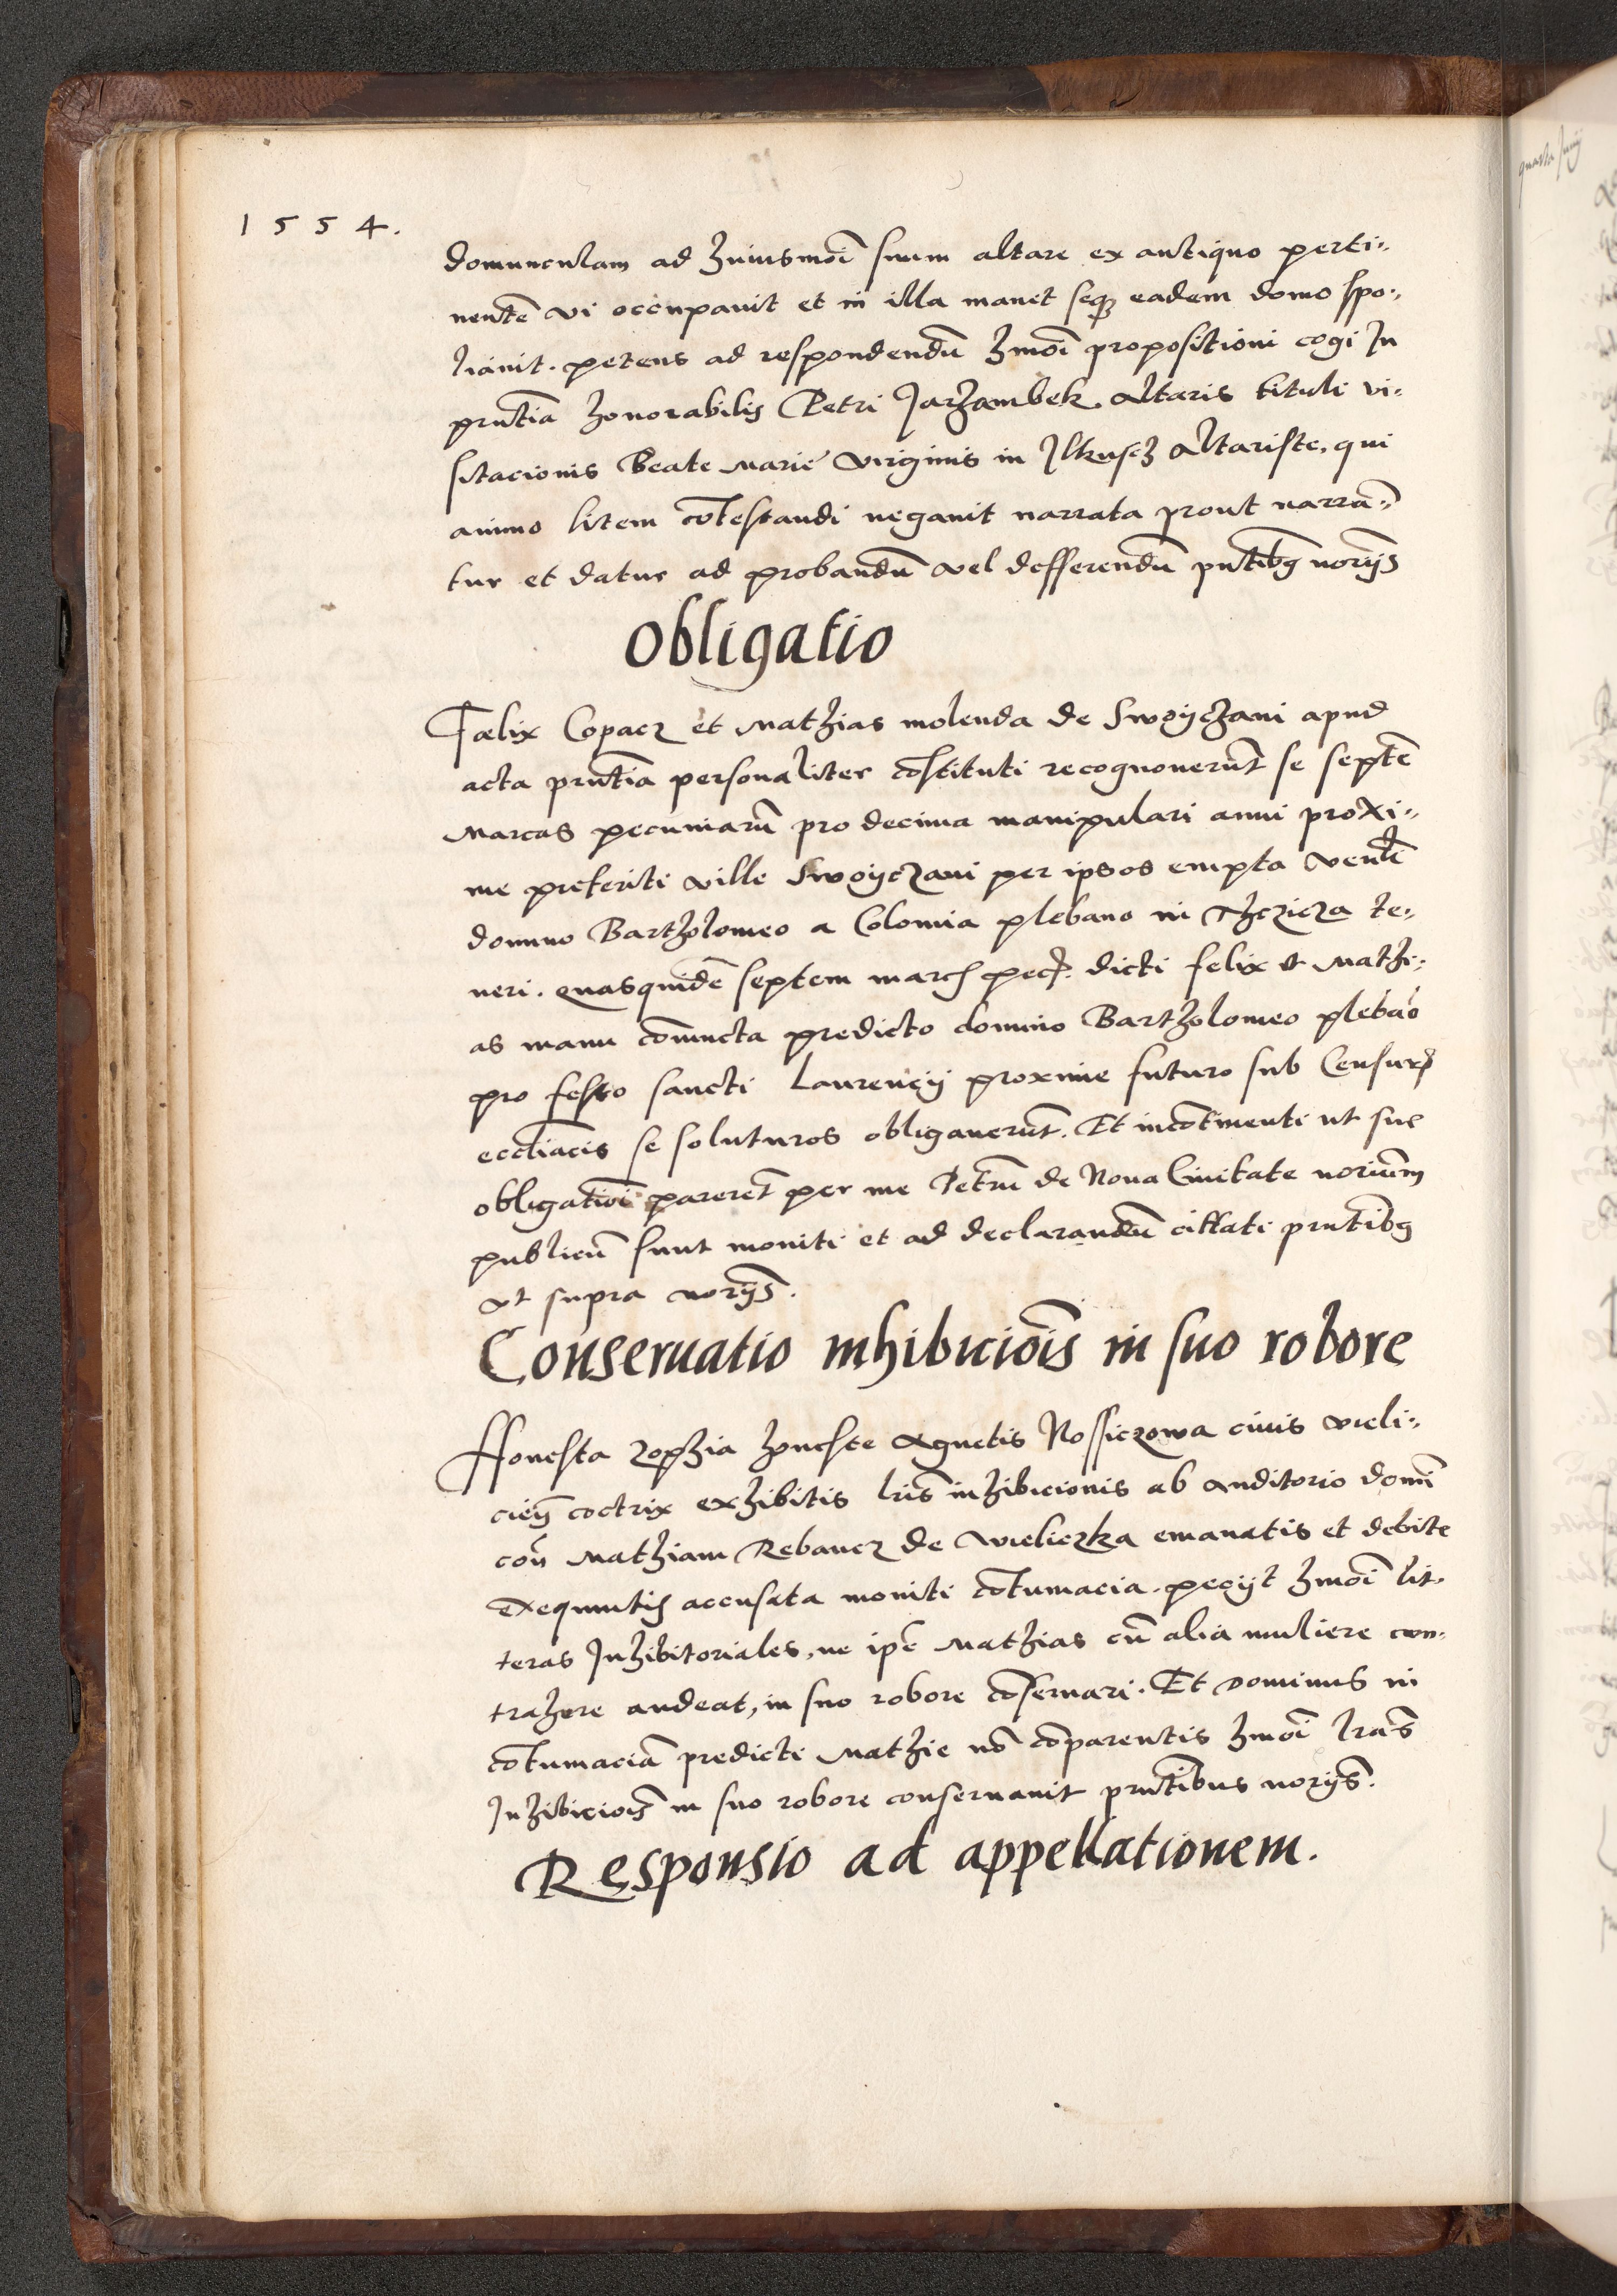 1554.
domunculam ad huiusmōi suum altare ex antiquo perti-
nentē vi occupauit et in illa manet seq3 eadem domo spo-
liauit. petens ad respondendū hmōi propositioni cogi In
pn̄tia honorabilis Petri Jarzambek Altaris tituli vi-
sitacionis Beate Marie Virginis in Ilkusch Altariste, qui
animo litem cōtestandi negauit narrata prout narrā-
tur et datur ad probandū vel defferendū pn̄tibg noriȷ̄s
Obligatio
Fælix Copacz et Mathias molenda de Swoijczani apud
acta prn̄tia personaliter cōstituti recognouerūt se septē
Marcas pecuniarū pro decima manipulari anni proxi-
me preteriti ville Swoijczani per ipsos empta Venlī
domino Bartholomeo a Colomia plebano in
neri. quasquidē septem march pecȷ. dicti felix et Mathi-
as manu cōiuncta predicto domino Bartholomeo plebāo
pro festo sancti Laurencij proxime futuro sub Censurȷ
eccliacis se soluturos obligauerūt. Et incōtinenti ut sue
obligatiōi parerēt per me Petrū de Noua Ciuitate noriūm
publicū sunt moniti et ad declarandū cittati prn̄tibg
vt supra noriȷ̄s.
Conseruatio inhibiciōis in suo robore
Honesta Zophia honeste Agnetis Nossiczowa ciuis vieli-
cieñ coctrix exhibitis lrīs inhibicionis ab auditorio domī
coñ Mathiam Rebaucz de wieliczka emanatis et debite
exequutis accusata moniti cōtumacia. pecijt hmōi lit-
teras Inhibitoriales, ne ipē Mathias cū alia muliere con-
trahere audeat, in suo robore cōseruari. Et Dominus in
cōtumaciā predicti Mathie nō cōparentis hmōi lrās
Inhibiciōis in suo robore conseruauit prn̄tibus noriȷ̄s.
Responsio ad appellationem.